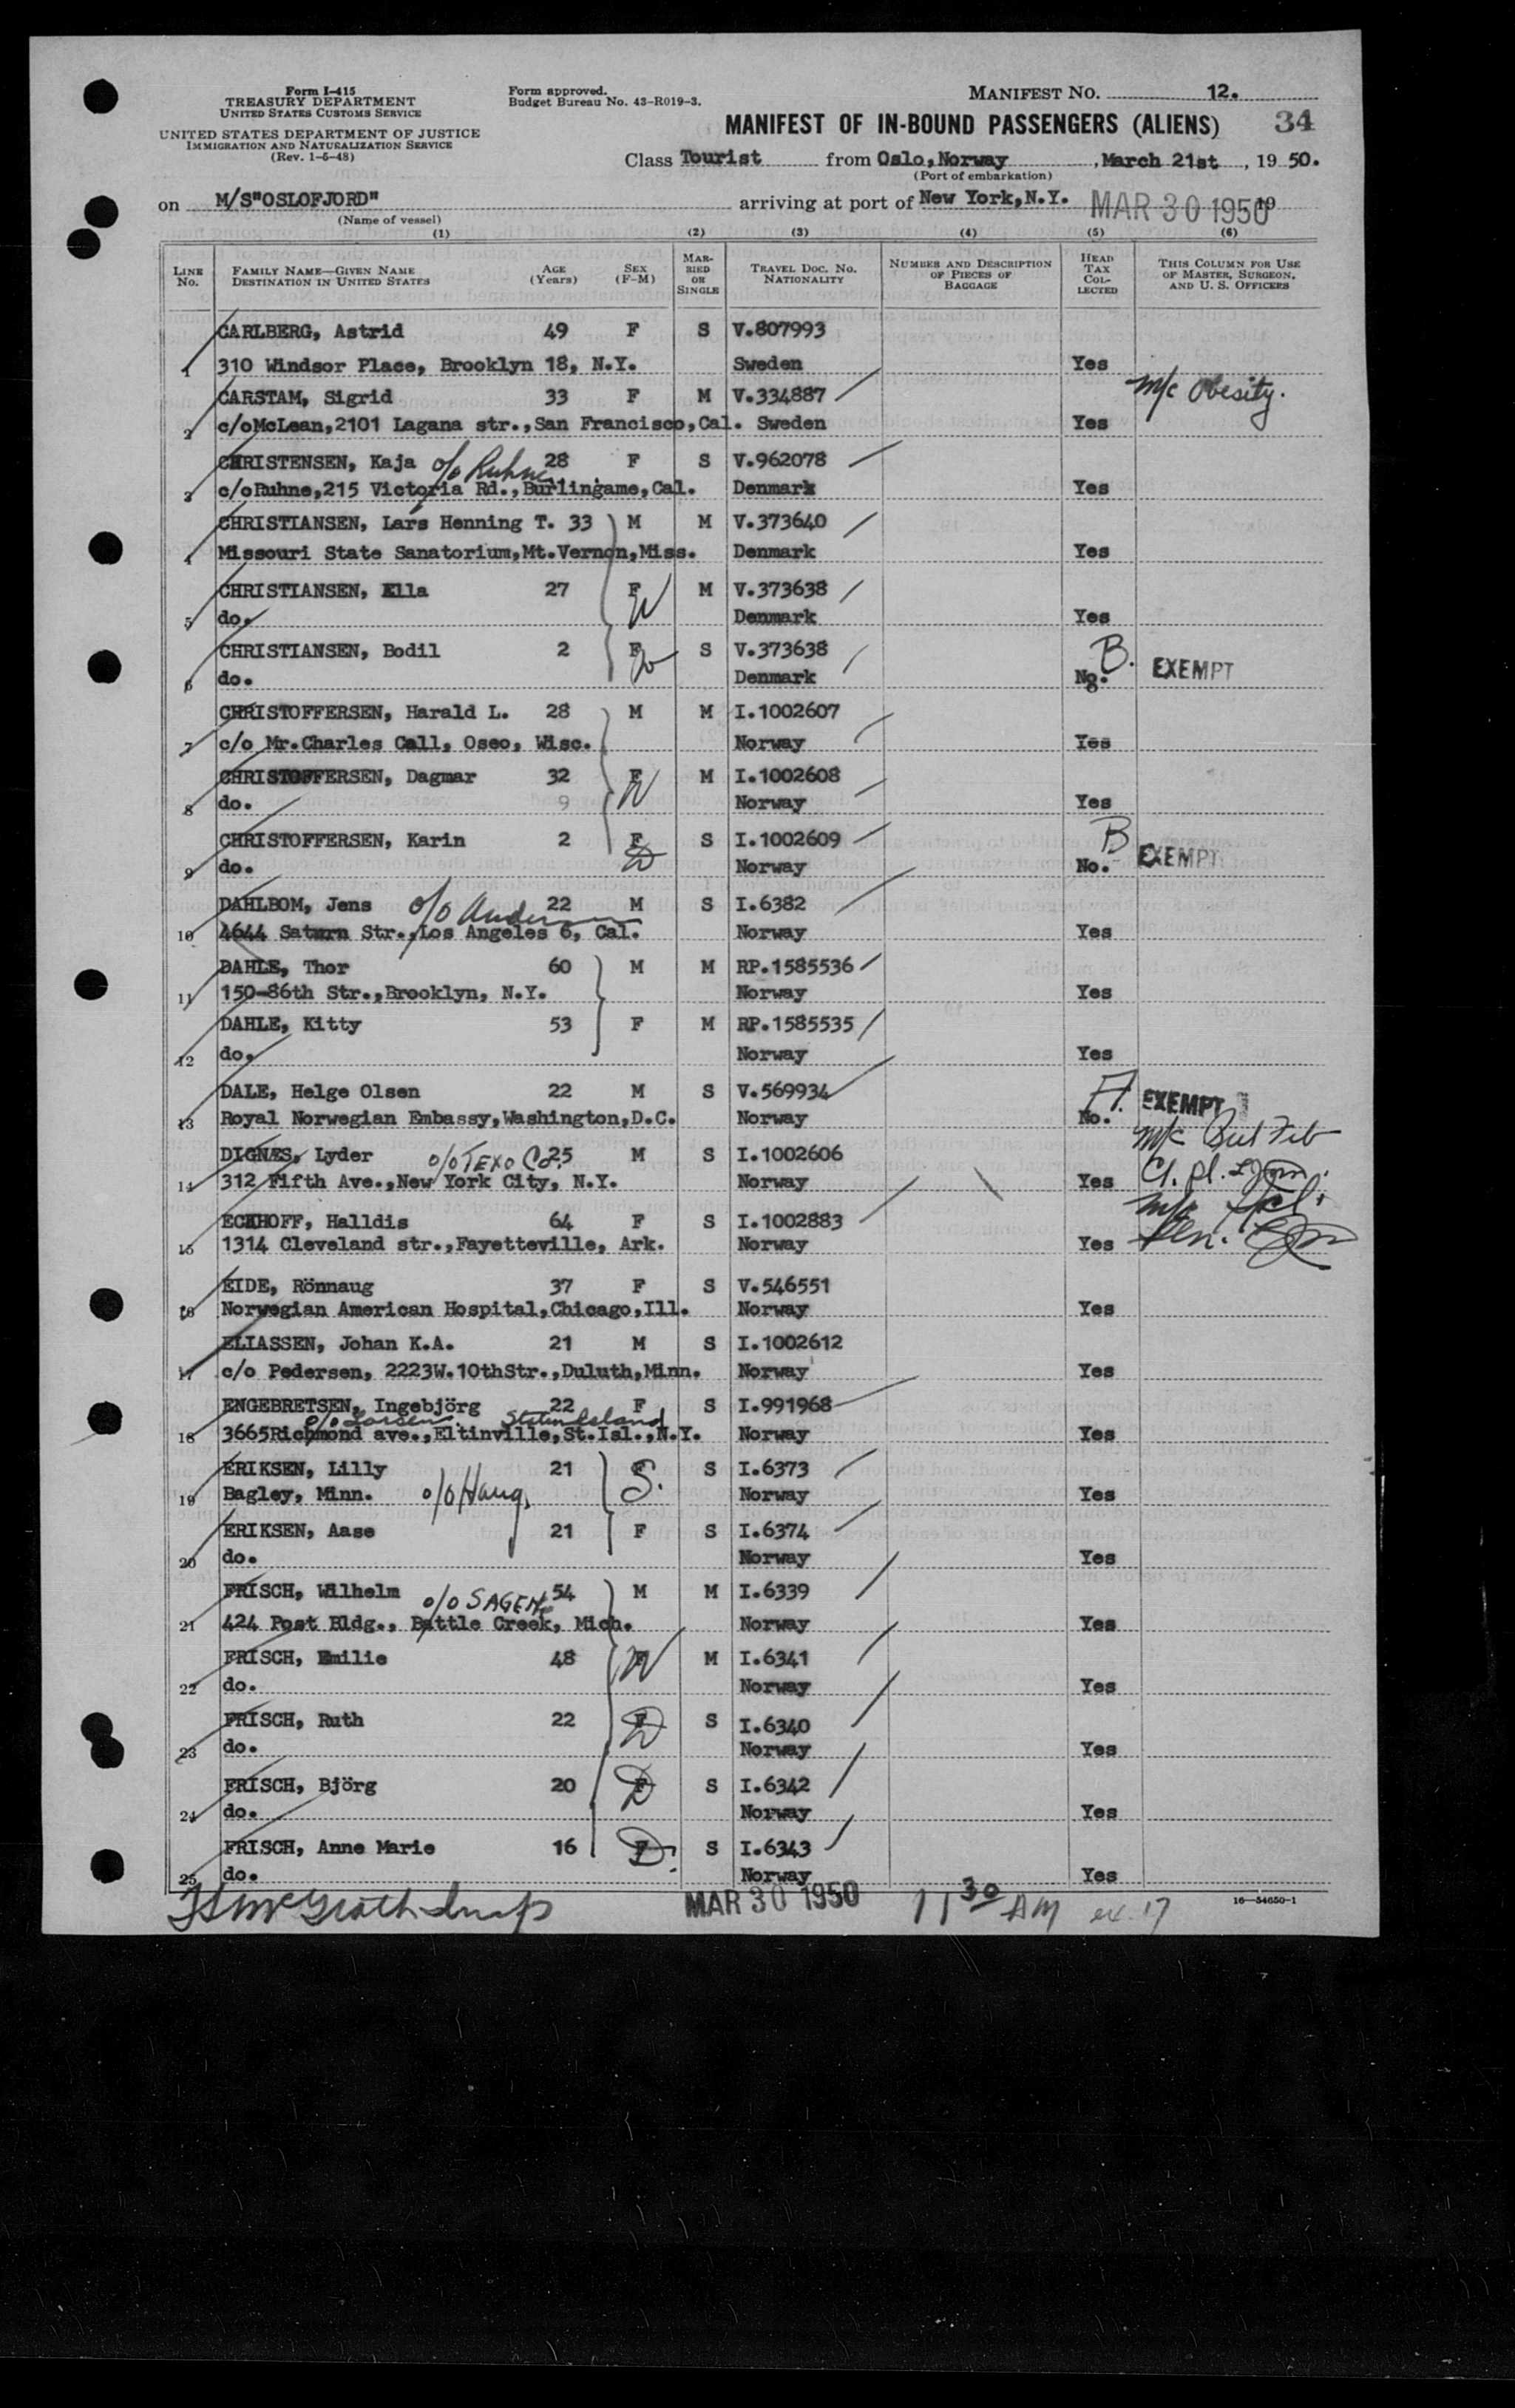 Form I-415
TREASURY DEPARTMENT
UNITED STATES CUSTOMS SERVICE
UNITED STATES DEPARTMENT OF JUSTICE
IMMIGRATION AND NATURALIZATION SERVICE
(Rev. 1-6-48)
Form approved.
Budget Bureau No. 43-R019-3.
MANIFEST NO. 12.
MANIFEST OF IN-BOUND PASSENGERS (ALIENS) 34
Class Tourist from Oslo, Norway, March 21st, 1950.
(Port of embarkation)
on M/S"OSLOFJORD" arriving at port of New York, N.Y. MAR 30 1950 19
(Name of vessel)
(1) (2) (3) (4) (5) (6)
LINE NO. FAMILY NAME—GIVEN NAME DESTINATION IN UNITED STATES AGE (Years) SEX (F-M) MARRIED OR SINGLE TRAVEL DOC. NO. NATIONALITY NUMBER AND DESCRIPTION OF PIECES OF BAGGAGE HEAD TAX COLLECTED THIS COLUMN FOR USE OF MASTER, SURGEON, AND U. S. OFFICERS
CARLBERG, Astrid 49 F S V.807993
1 310 Windsor Place, Brooklyn 18, N.Y. Sweden Yes
CARSTAM, Sigrid 33 F M V.334887 m/c Obesity.
2 c/o McLean, 2101 Lagana str., San Francisco, Cal. Sweden Yes
CHRISTENSEN, Kaja o/o Ruhne 28 F S V.962078
3 c/o Ruhne, 215 Victoria Rd., Burlingame, Cal. Denmark Yes
CHRISTIANSEN, Lars Henning T. 33 M M V.373640
4 Missouri State Sanatorium, Mt. Vernon, Miss. Denmark Yes
CHRISTIANSEN, Ella 27 F W M V.373638
5 do. Denmark Yes
CHRISTIANSEN, Bodil 2 F S V.373638 B. EXEMPT
6 do. Denmark No.
CHRISTOFFERSEN, Harald L. 28 M M I.1002607
7 c/o Mr. Charles Call, Oseo, Wisc. Norway Yes
CHRISTOFFERSEN, Dagmar 32 F W M I.1002608
8 do. 9 Norway Yes
CHRISTOFFERSEN, Karin 2 F D S I.1002609 B EXEMPT
9 do. Norway No.
DAHLBOM, Jens o/o Anderson 22 M S I.6382
10 4644 Saturn Str., Los Angeles 6, Cal. Norway Yes
DAHLE, Thor 60 M M RP.1585536
11 150-86th Str., Brooklyn, N.Y. Norway Yes
DAHLE, Kitty 53 F M RP.1585535
12 do. Norway Yes
DALE, Helge Olsen 22 M S V.569934 A. EXEMPT
13 Royal Norwegian Embassy, Washington, D.C. Norway No.
DIGNÆS, Lyder o/o TEXO Co. 25 M S I.1002606 m/c
14 312 Fifth Ave., New York City, N.Y. Norway Yes
ECKHOFF, Halldis 64 F S I.1002883 m/c
15 1314 Cleveland str., Fayetteville, Ark. Norway Yes Sen.
EIDE, Rönnaug 37 F S V.546551
16 Norwegian American Hospital, Chicago, Ill. Norway Yes
ELIASSEN, Johan K.A. 21 M S I.1002612
17 c/o Pedersen, 2223W.10thStr., Duluth, Minn. Norway Yes
ENGEBRETSEN, Ingebjörg 22 F S I.991968
o/o Larsen Staten Island
18 3665 Richmond ave., Eltinville, St. Isl., N.Y. Norway Yes
ERIKSEN, Lilly 21 S. S I.6373
19 Bagley, Minn. o/o Haug, Norway Yes
ERIKSEN, Aase 21 F S I.6374
20 do. Norway Yes
FRISCH, Wilhelm o/o SAGEN 54 M M I.6339
21 424 Post Bldg., Battle Creek, Mich. Norway Yes
FRISCH, Emilie 48 F W M I.6341
22 do. Norway Yes
FRISCH, Ruth 22 F D S I.6340
23 do. Norway Yes
FRISCH, Björg 20 F D S I.6342
24 do. Norway Yes
FRISCH, Anne Marie 16 F D. S I.6343
25 do. Norway Yes
MAR 30 1950 11 30 AM ex. 17 16—54650-1